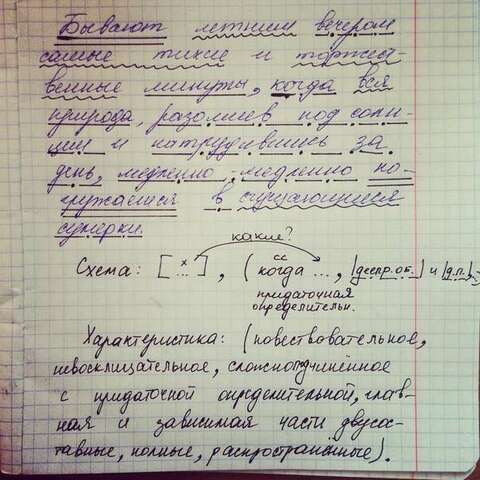 Бывают летним вечером
самые тихие и торжест-
венные минуты, когда вся
природа, разомлев под солн-
цем и натрудившись за
день, медленно-медленно по-
гружается в сгущающиеся
сумерки.
какие?
Схема: [ х ... ], ( сс когда ..., |деепр.об.| и |д.п.|,
придаточная
определительн.
Характеристика: (повествовательное,
невосклицательное, сложноподчинённое
с придаточной определительной, глав-
ная и зависимая части двусос-
тавные, полные, распространённые).